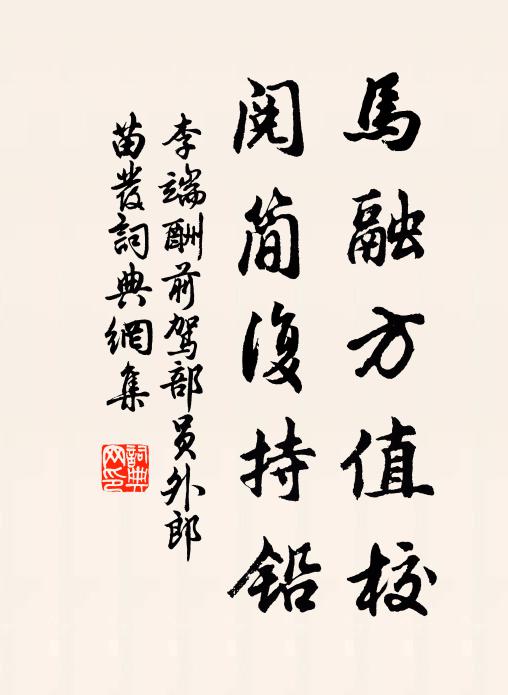 馬融方值校
閱简復持鉛
李端酬前駕部员外郎
苗發詞典網集
詞典
网印